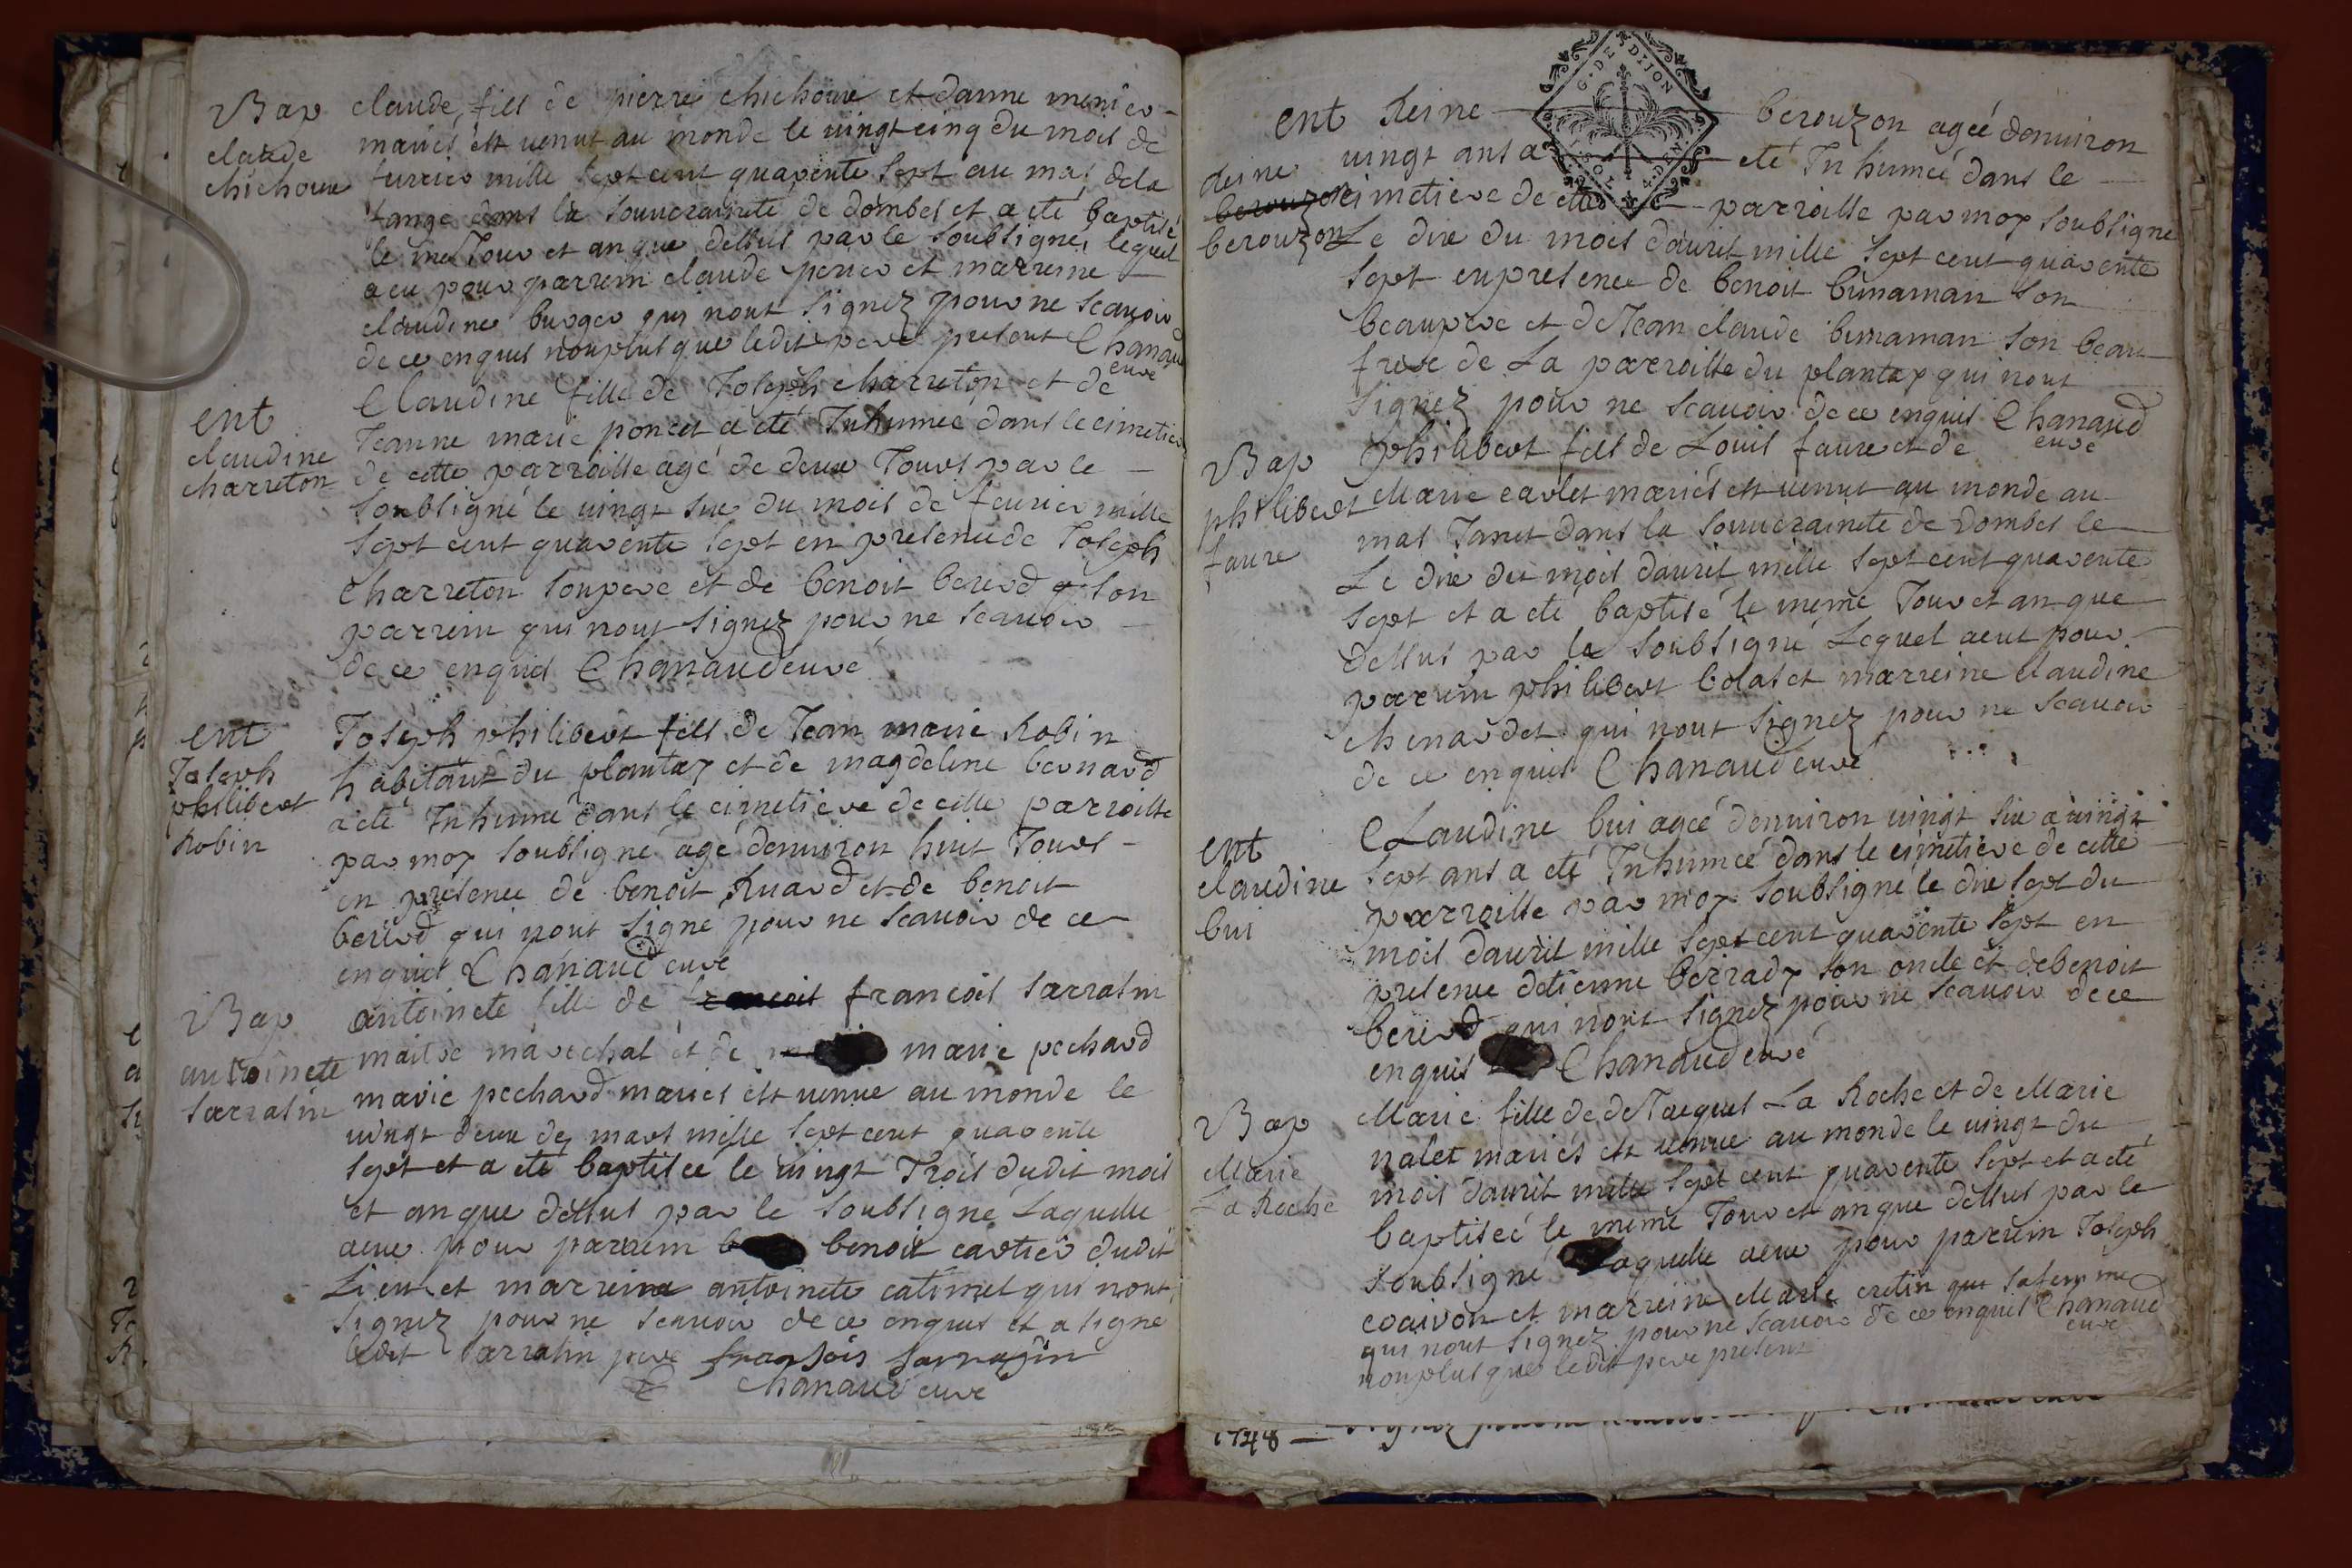 Bap
claude
chichoux
claude, fils de pierre chichoux et danne menier
mariés est venut au monde le vingt cinq du mois de
feurier mille sept cent quarente sept au mas dela
fange dans la souueraineté de dombes et a eté baptisé
le me Jour et an que dessus par le soubsigné, lequel
a eu pour parrein claude perrier et marreine
claudine burger qui nont signez pour ne scauoir
de ce enquis nonplus que ledit pere present Chanaud
curé
ent
claudine
charreton
Claudine fille de Joseph charreton et de
Jeanne marie poncet a eté Inhumée dans le cimetier
de cette parroisse agé de deux Jours par le
soubsigné le vingt six du mois de feurier mille
sept cent quarente sept en presence de Joseph
Charreton son pere et de benoit bererd son
parrein qui nont signez pour ne scauoir
de ce enquis Chanaud curé
ent
Joseph
philibert
Robin
Joseph philibert fils de Jean marie Robin
habitant du plantay et de magdeline bernard
a eté Inhumé dans le cimetiere de cette parroisse
par moy soubsigné agé denuiron huit Jours
en presence de benoit Ruard et de benoit
bererd qui nont signé pour ne scauoir de ce
enquis Chanaud curé
Bap
antoinete
sarrasin
antoinete fille de francois francois sarrasin
maitre marechal et de marie pechard
marie pechard mariés est venue au monde le
vingt deux de mars mille sept cent quarente
sept et a eté baptisée le vingt Trois dudit mois
et an que dessus par le soubsigné Laquelle
a eue pour parrein benoit cartier dudit
Lieu et marreine antoinete catimel qui nont
signez pour ne scauoir de ce enquis et a signé
ledit sarrasin pere fransois sarrazin
Chanaud curé
ent
Reine
berouzon
berouzon
Reine berouzon ageé denuiron
vingt ans a eté Inhumeé dans le
cimetiere de cette parroisse par moy soubsigné
Le dix du mois dauril mille sept cent quarente
sept en presence de benoit bunaman son
beaupere et de Jean claude bunaman son beau
frere de La parroisse du plantay qui nont
signez pour ne scauoir de ce enquis Chanaud
curé
Bap
philibert
faure
philibert fils de Louis faure et de
Marie carlet mariés est venut au monde au
mas Janet dans la souueraineté de Dombes le
Le dix du mois dauril mille sept cent quarente
sept et a eté baptisé le meme Jour et an que
dessus par le soubsigné Lequel a eut pour
parrein philibert bolas et marreine claudine
chenardet qui nont signez pour ne scauoir
de ce enquis Chanaud curé
ent
claudine
bui
CLaudine bui ageé denuiron vingt six a vingt
sept ans a eté Inhumeé dans le cimetiere de cette
parroisse par moy soubsigné le dix sept du
mois dauril mille sept cent quarente sept en
presence detienne berrady son oncle et de benoit
berird qui nont signez pour ne scauoir de ce
enquis Chanaud curé
Bap
Marie
La Roche
Marie fille de de Jacques La Roche et de Marie
nalet mariés est venue au monde le vingt du
mois dauril mille sept cent quarente sept et a eté
baptiseé le meme Jour et an que dessus par le
soubsigné Laquelle a eue pour parrein Joseph
coaivon et marreine Marie cretin sa femme
qui nont signez pour ne scauoir de ce enquis Chanaud
curé
nonplus que ledit pere present
1748
G. DE DIJON